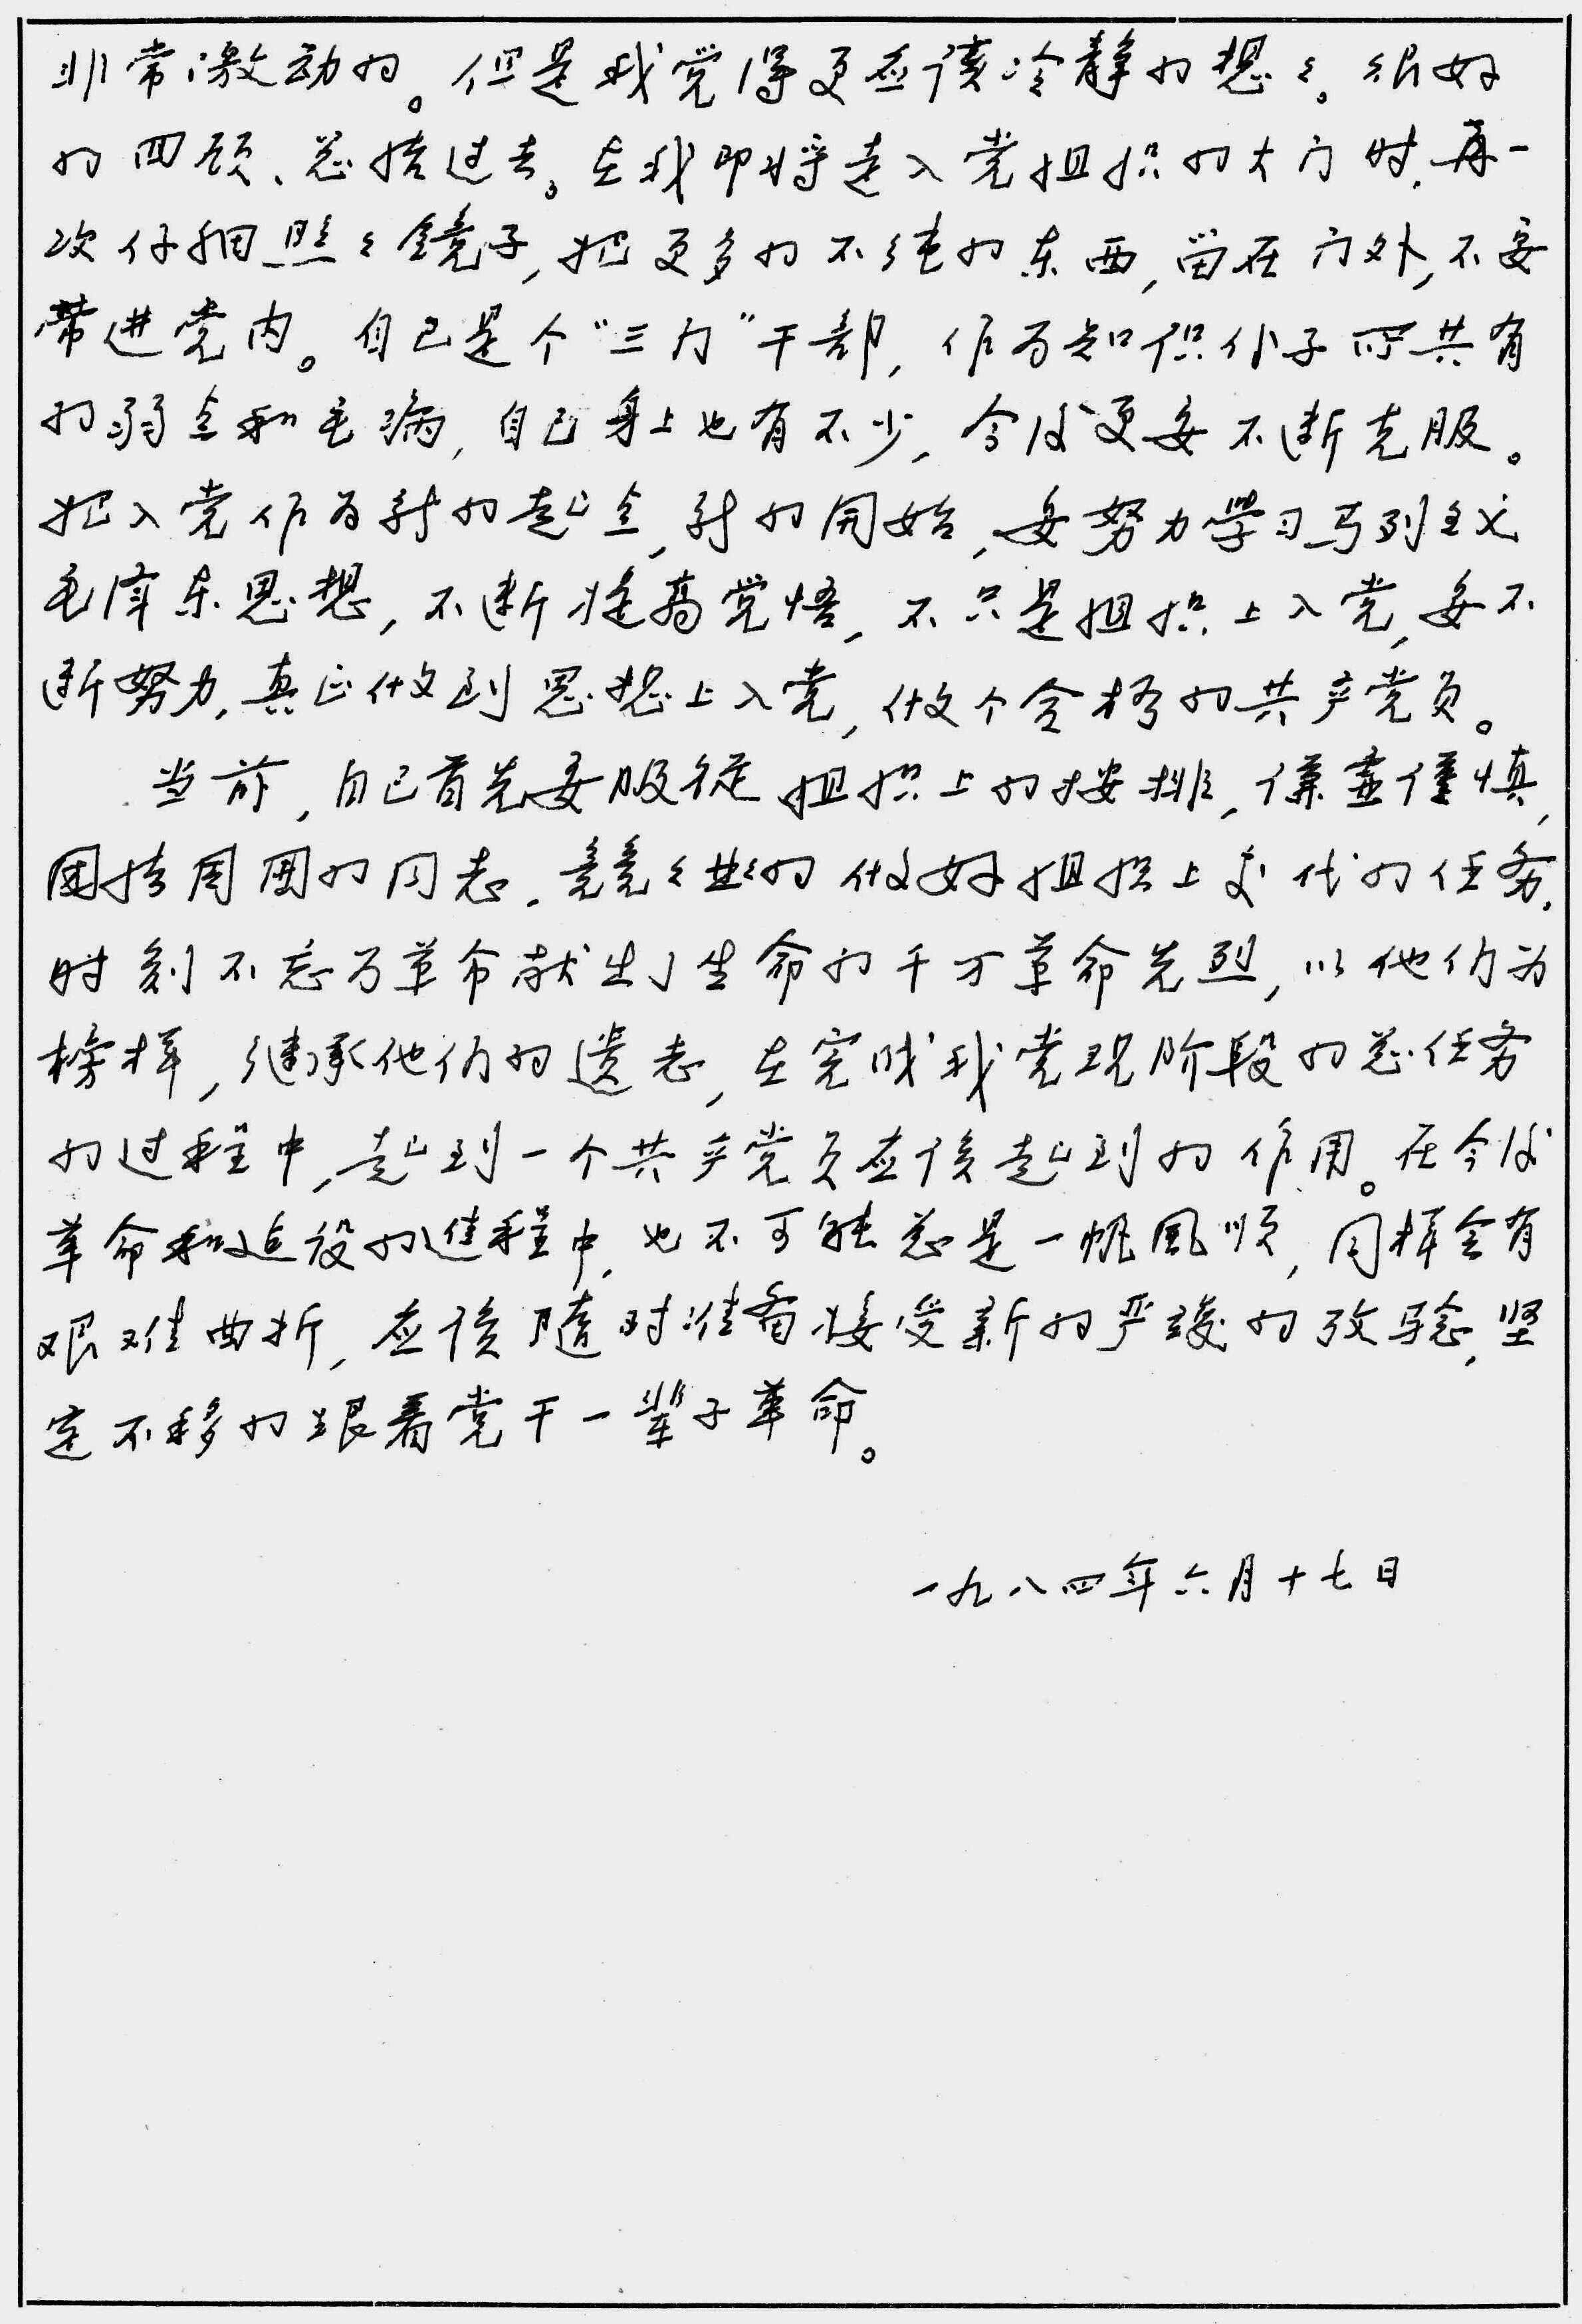 非常激动的。但是我觉得更应该冷静的想々。很好
的回顾、总结过去。在我即将走入党组织的大门时,再一
次仔细照々镜子,把更多的不纯的东西,留在门外,不要
带进党内。自己是个“三门”干部,作为知识分子所共有
的弱点和毛病,自己身上也有不少,今后更要不断克服。
把入党作为新的起点,新的开始,要努力学习马列主义
毛泽东思想,不断提高觉悟,不只是组织上入党,要不
断努力,真正做到思想上入党,做个合格的共产党员。
当前,自己首先要服从组织上的按排,谦虚谨慎,
团结周围的同志。兢々业々的做好组织上交代的任务.
时刻不忘为革命献出了生命的千万革命先烈,以他们为
榜样,继承他们的遗志,在完成我党现阶段的总任务
的过程中,起到一个共产党员应该起到的作用。在今后
革命和建设的进程中,也不可能总是一帆风顺,同样会有
艰难曲折,应该随时准备接受新的严峻的考验,坚
定不移的跟着党干一辈子革命。
一九八四年六月十七日